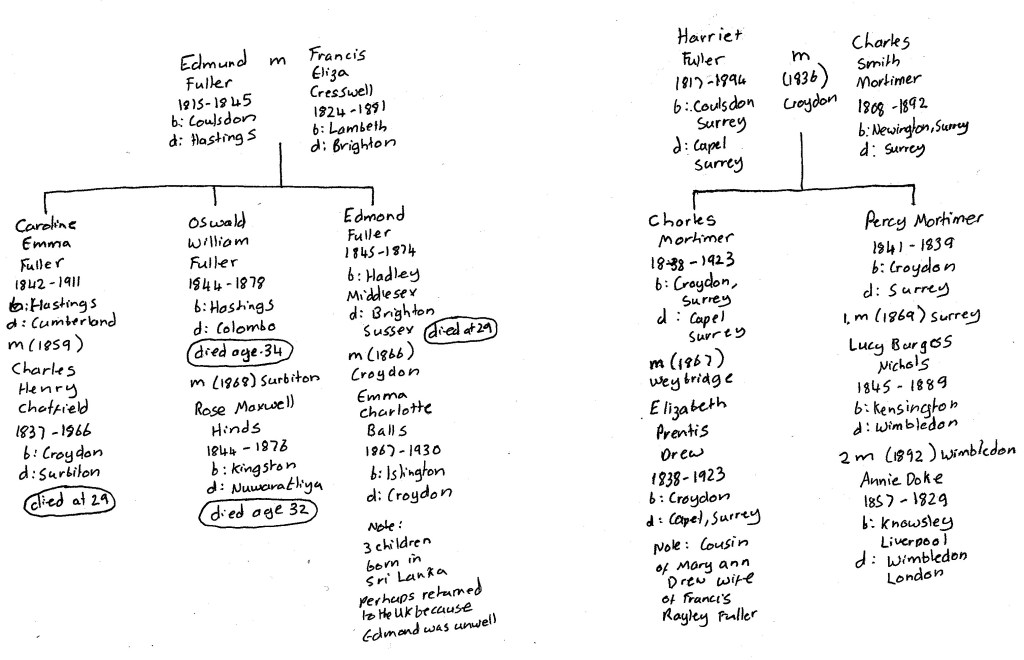 Edmund
Fuller
1815-1845
b: Coulsdon
d: Hastings
m
Francis
Eliza
Cresswell
1824-1881
b: Lambeth
d: Brighton
Caroline
Emma
Fuller
1842-1911
b: Hastings
d: Cumberland
m (1859)
Charles
Henry
Chatfield
1837-1866
b: Croydon
d: Surbiton
died at 29
Oswald
William
Fuller
1844-1878
b: Hastings
d: Colombo
died age 34
m (1868) Surbiton
Rose Maxwell
Hinds
1844-1876
b: Kingston
d: Nuwaraeliya
died age 32
Edmond
Fuller
1845-1874
b: Hadley
Middlesex
d: Brighton
Sussex
died at 29
m (1866)
Croydon
Emma
Charlotte
Balls
1867-1930
b: Islington
d: Croydon
Note:
3 children
born in
Sri Lanka
perhaps returned
to the UK because
Edmond was unwell
Harriet
Fuller
1817-1894
b: Coulsdon
Surrey
d: Capel
Surrey
m
(1836)
Croydon
Charles
Smith
Mortimer
1808-1892
b: Newington, Surrey
d: Surrey
Charles
Mortimer
1838-1923
b: Croydon,
Surrey
d: Capel
Surrey
m (1867)
Weybridge
Elizabeth
Prentis
Drew
1838-1923
b: Croydon
d: Capel, Surrey
Note: Cousin
of Mary ann
Drew wife
of Francis
Rayley Fuller
Percy Mortimer
1841-1839
b: Croydon
d: Surrey
1. m (1869) Surrey
Lucy Burgos
Nichols
1845-1889
b: Kensington
d: Wimbledon
2 m (1892) Wimbledon
Annie Doke
1857-1829
b: Knowsley
Liverpool
d: Wimbledon
London